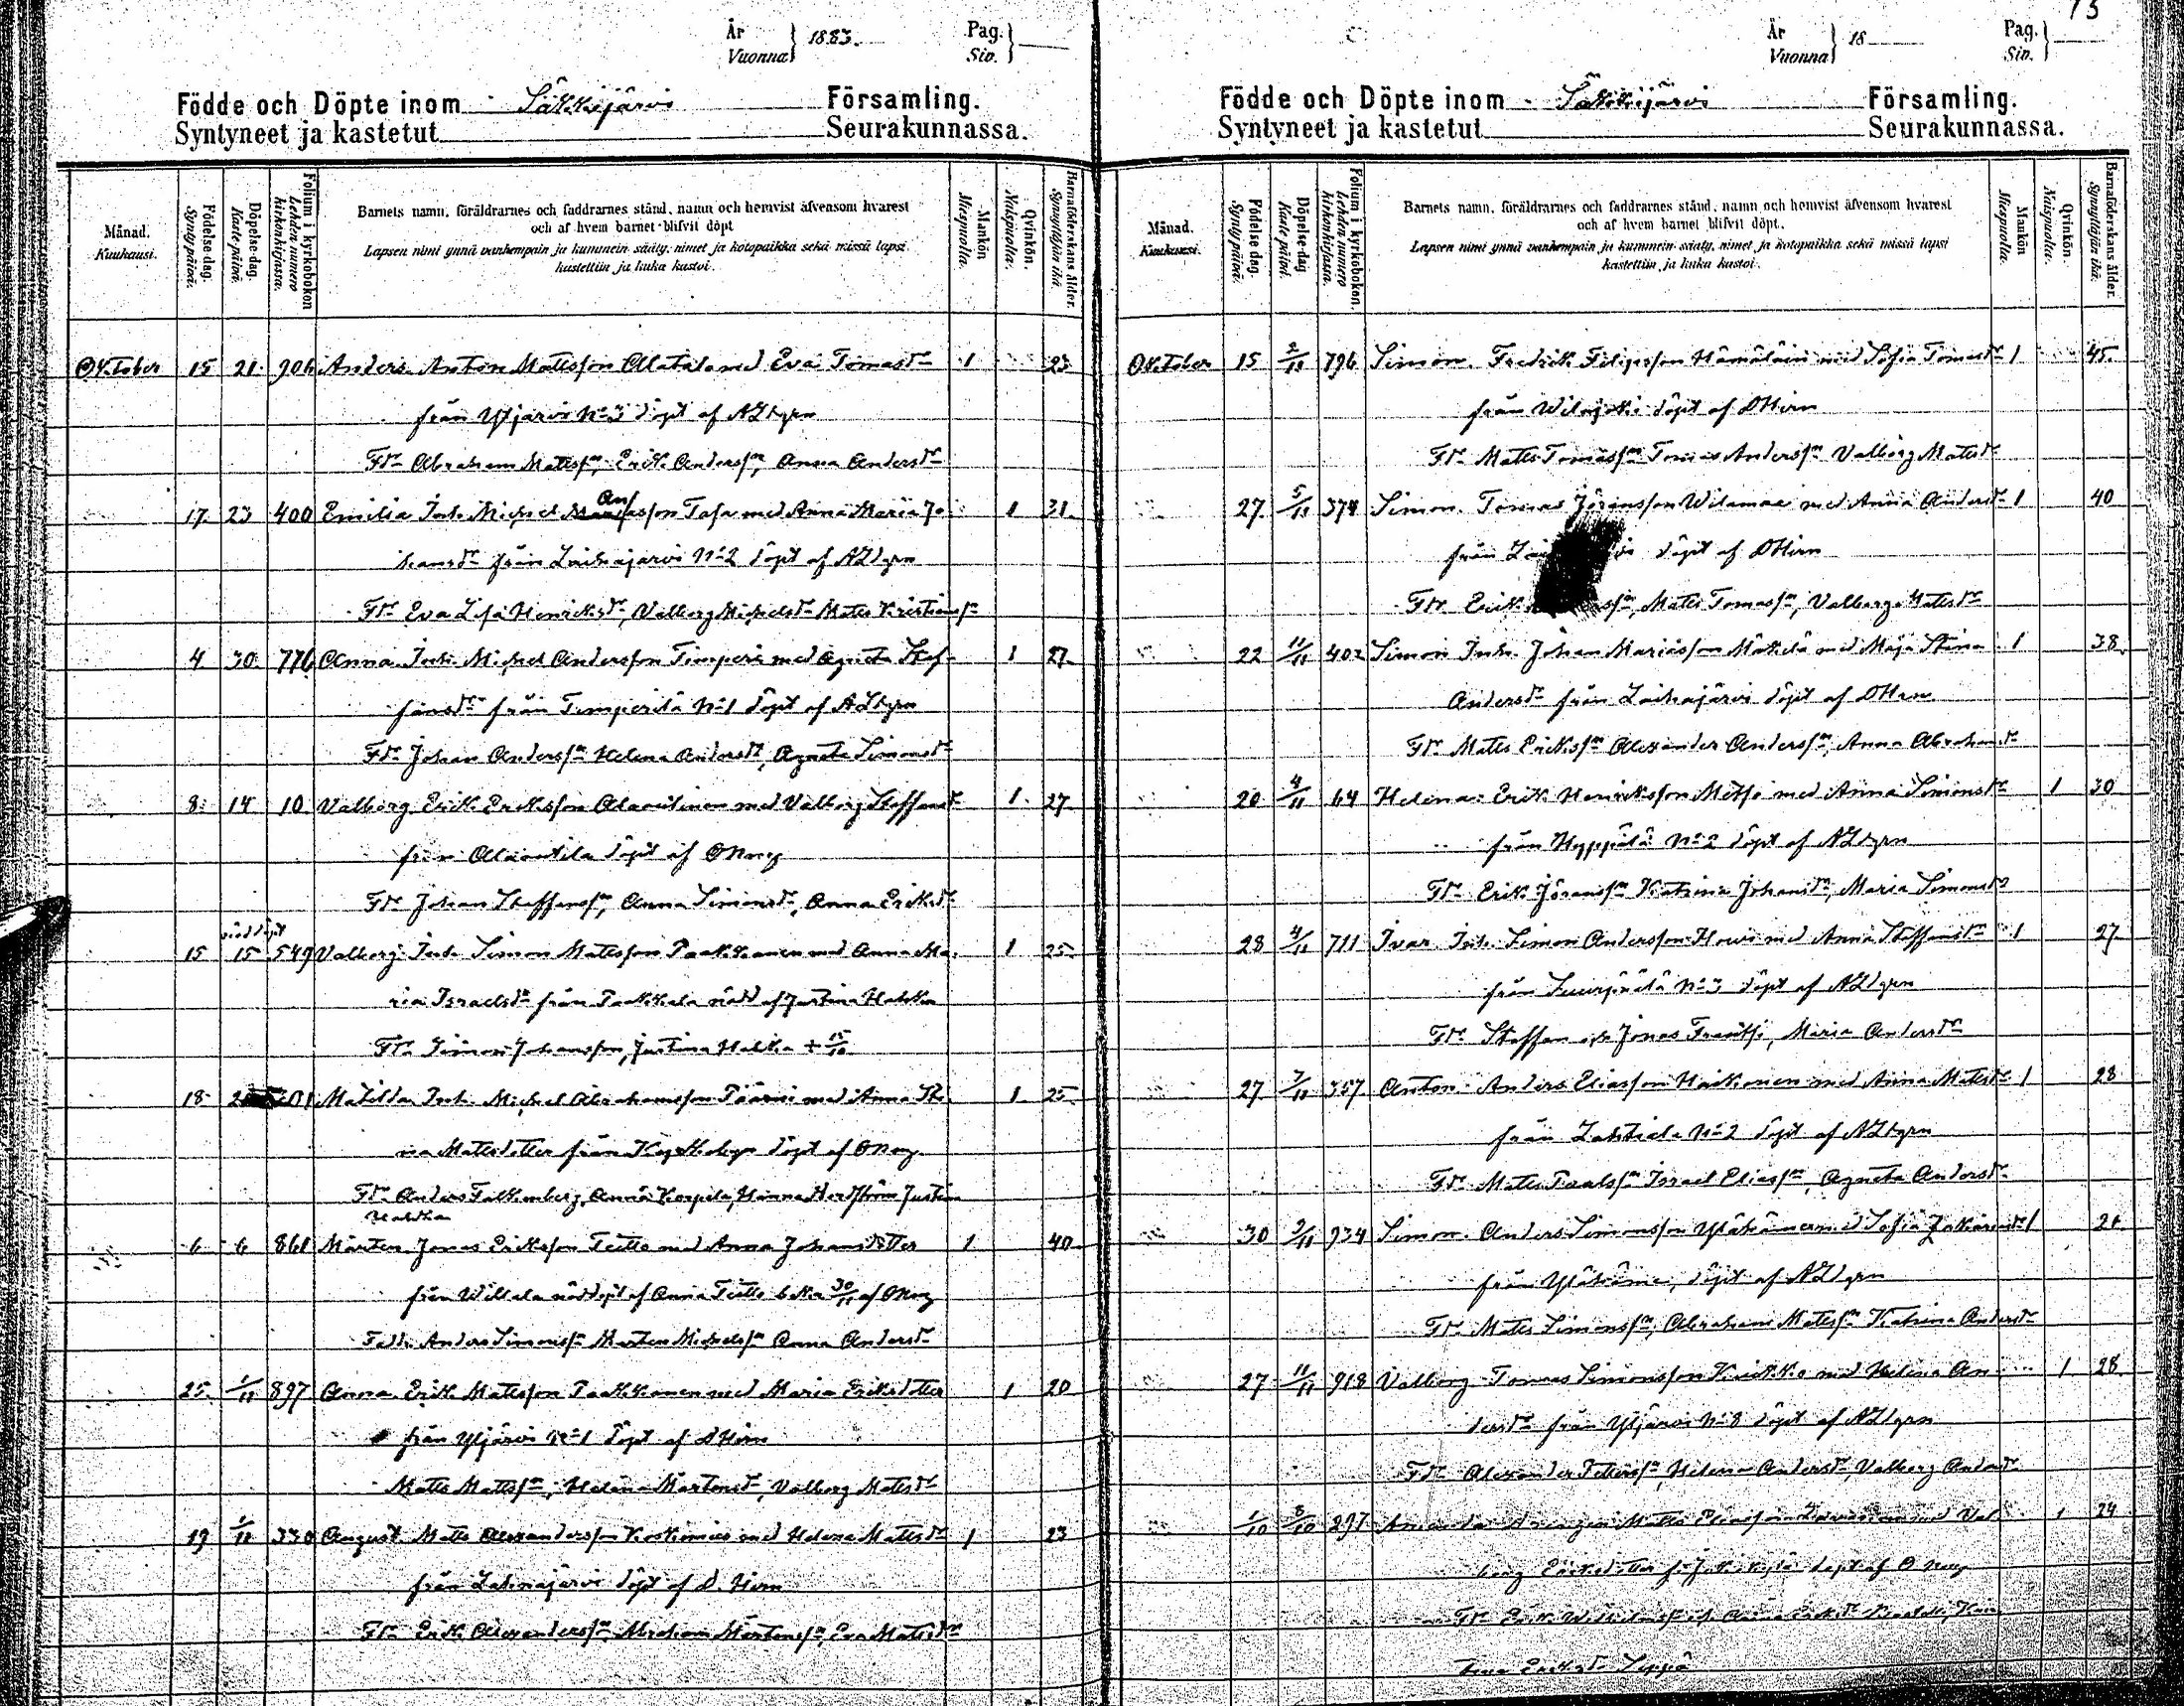 År
Vuonna } 1883.
Pag.
Siv. }
Födde och Döpte inom Säkkijärvi Församling.
Syntyneet ja kastetut Seurakunnassa.
Månad.
Kuukausi.
Födelse-dag.
Syntypäivä.
Döpelse-dag.
Kastepäivä.
Folium i kyrkoboken
Lehden numero kirkonkirjassa.
Barnets namn, föräldrarnes och faddrarnes stånd, namn och hemvist äfvensom hvarest
och af hvem barnet blifvit döpt
Lapsen nimi ynnä vanhempain ja kummein sääty, nimet ja kotopaikka sekä missä lapsi
kastettiin ja kuka kastoi.
Mankön
Miespuolia.
Qvinkön.
Naispuolia.
Barnaföderskans ålder.
Synnyttäjän ikä.
Oktober 15 21 906 Anders. Anton Mattsson Alatalo med Eva Tomasdr 1 23
från Yljärvi No 3 döpt af
Fdr Abraham Mattsson, Erik Andersson, Anna Andersdr
17 23 400 Emilia Inh. Michel Anssson Tasa med Anna Maria Jo 1 31
hansdr från Laihajärvi No 2 döpt af
Fdr Eva Lisa Henriksdr, Valborg Michelsdr Matts Kristiansson
4 30 776 Anna Inh. Michel Andersson Timperi med Agneta Staf 1 27
fansdr från Timperilä No 1 döpt af
Fdr Johan Andersson Helena Andersdr, Agneta Simonsdr
8 14 10 Valborg Erik Eriksson Alaoutinen med Valborg Staffansdr 1 27
från Alaoutila döpt af
Fdr Johan Staffansson, Anna Simonsdr, Anna Eriksdr
nöddöpt
15 15 549 Valborg Inh. Simon Mattsson Paakkanen med Anna Ma 1 25
ria Israelsdr från Paakkala nödd af Justina Hakka
Fdr Simon Johansson, Justina Hakka + 15/10
18 Matilda Inh. Michel Abrahamsson Pääviö med Anna Sti 1 25
na Mattsdotter från Kyrkobyn döpt af
Fdr Anders Falkenberg, Anna Korpela, Hanna Nordström Justina
Hakka
6 6 861 Mårten Jonas Eriksson Teitto med Anna Johansdotter 1 40
från Willala nöddöpt af Anna Teitto bekr 30/11 af
Fadr Anders Simonsson Mårten Michelsson Anna Andersdr
25 1/11 897 Anna Erik Mattsson Paakkanen med Maria Eriksdotter 1 20
från Yljärvi No 1 döpt af DHirn
Matts Mattsson, Helena Mårtensdr, Valborg Mattsdr
19 1/11 330 August Matts Alexandersson Koskimies med Helena Mattsdr 1 23
från Lahnajärvi döpt af D. Hirn
Fdr Erik Alexandersson, Abraham Mårtensson Eva Mattsdr
13
År
Vuonna } 18
Pag.
Siv. }
Födde och Döpte inom Säkkijärvi Församling.
Syntyneet ja kastetut Seurakunnassa.
Månad.
Kuukausi.
Födelse dag.
Syntypäivä.
Döpelse-dag
Kastepäivä.
Folium i kyrkoboken.
Lehden numero kirkonkirjassa.
Barnets namn, föräldrarnes och faddrarnes stånd, namn och hemvist äfvensom hvarest
och af hvem barnet blifvit döpt.
Lapsen nimi ynnä vanhempain ja kummein sääty, nimet ja kotopaikka sekä missä lapsi
kastettiin ja kuka kastoi.
Mankön
Miespuolia.
Qvinkön.
Naispuolia.
Barnaföderskans ålder.
Synnyttäjän ikä.
Oktober 15 2/11 796 Simon. Fredrik Filipsson Hämäläin med Sofia Tomasdr 1 45
från Wilajoki döpt af DHirn
Fdr Matts Tomasson Tomas Andersson Valborg Mattsdr
27 5/11 374 Simon. Tomas Jöransson Wilamaa med Anna Andersdr 1 40
från döpt af DHirn
Fdr Erik Matts Tomasson, Valborg Mattsdr
22 11/11 402 Simon Inh. Johan Mariasson Mäkelä med Maja Stina 1 38
Andersdr från Laihajärvi döpt af DHirn
Fdr Matts Eriksson Alexander Andersson, Anna Abrahamsdr
20 4/11 64 Helena. Erik Henriksson Metso med Anna Simonsdr 1 30
från Hyppälä No 2 döpt af
Fdr Erik Jöransson Katrina Johansdr, Maria Simonsdr
28 4/11 711 Ivar Inh. Simon Andersson Howi med Anna Staffansdr 1 27
från Suurpäälä No 3 döpt af
Fdr Staffan och Jonas Frantsi, Maria Andersdr
27 7/11 357 Anton. Anders Eliasson Haikonen med Anna Mattsdr 1 28
från Lahtiala No 2 döpt af
Fdr Matts Paalsson Israel Eliasson, Agneta Andersdr
30 9/11 934 Simon. Anders Simonsson Ylähämen med Sofia Zakariasdr 1 21
från Ylähäme, döpt af
Fdr Matts Simonsson, Abraham Mattsson Katrina Andersdr
27 11/11 918 Valborg Tomas Simonsson Kuikko med Helena An 1 28
dersdr från Yljärvi No 8 döpt af
Fdr Alexander Pettersson, Helena Andersdr Valborg Andersdr
1/10 8/10 297 Amanda Matts Eliasson med Val 1 24
borg Eriksdotter döpt af
Fdr Erik
Eriksdr Seppä